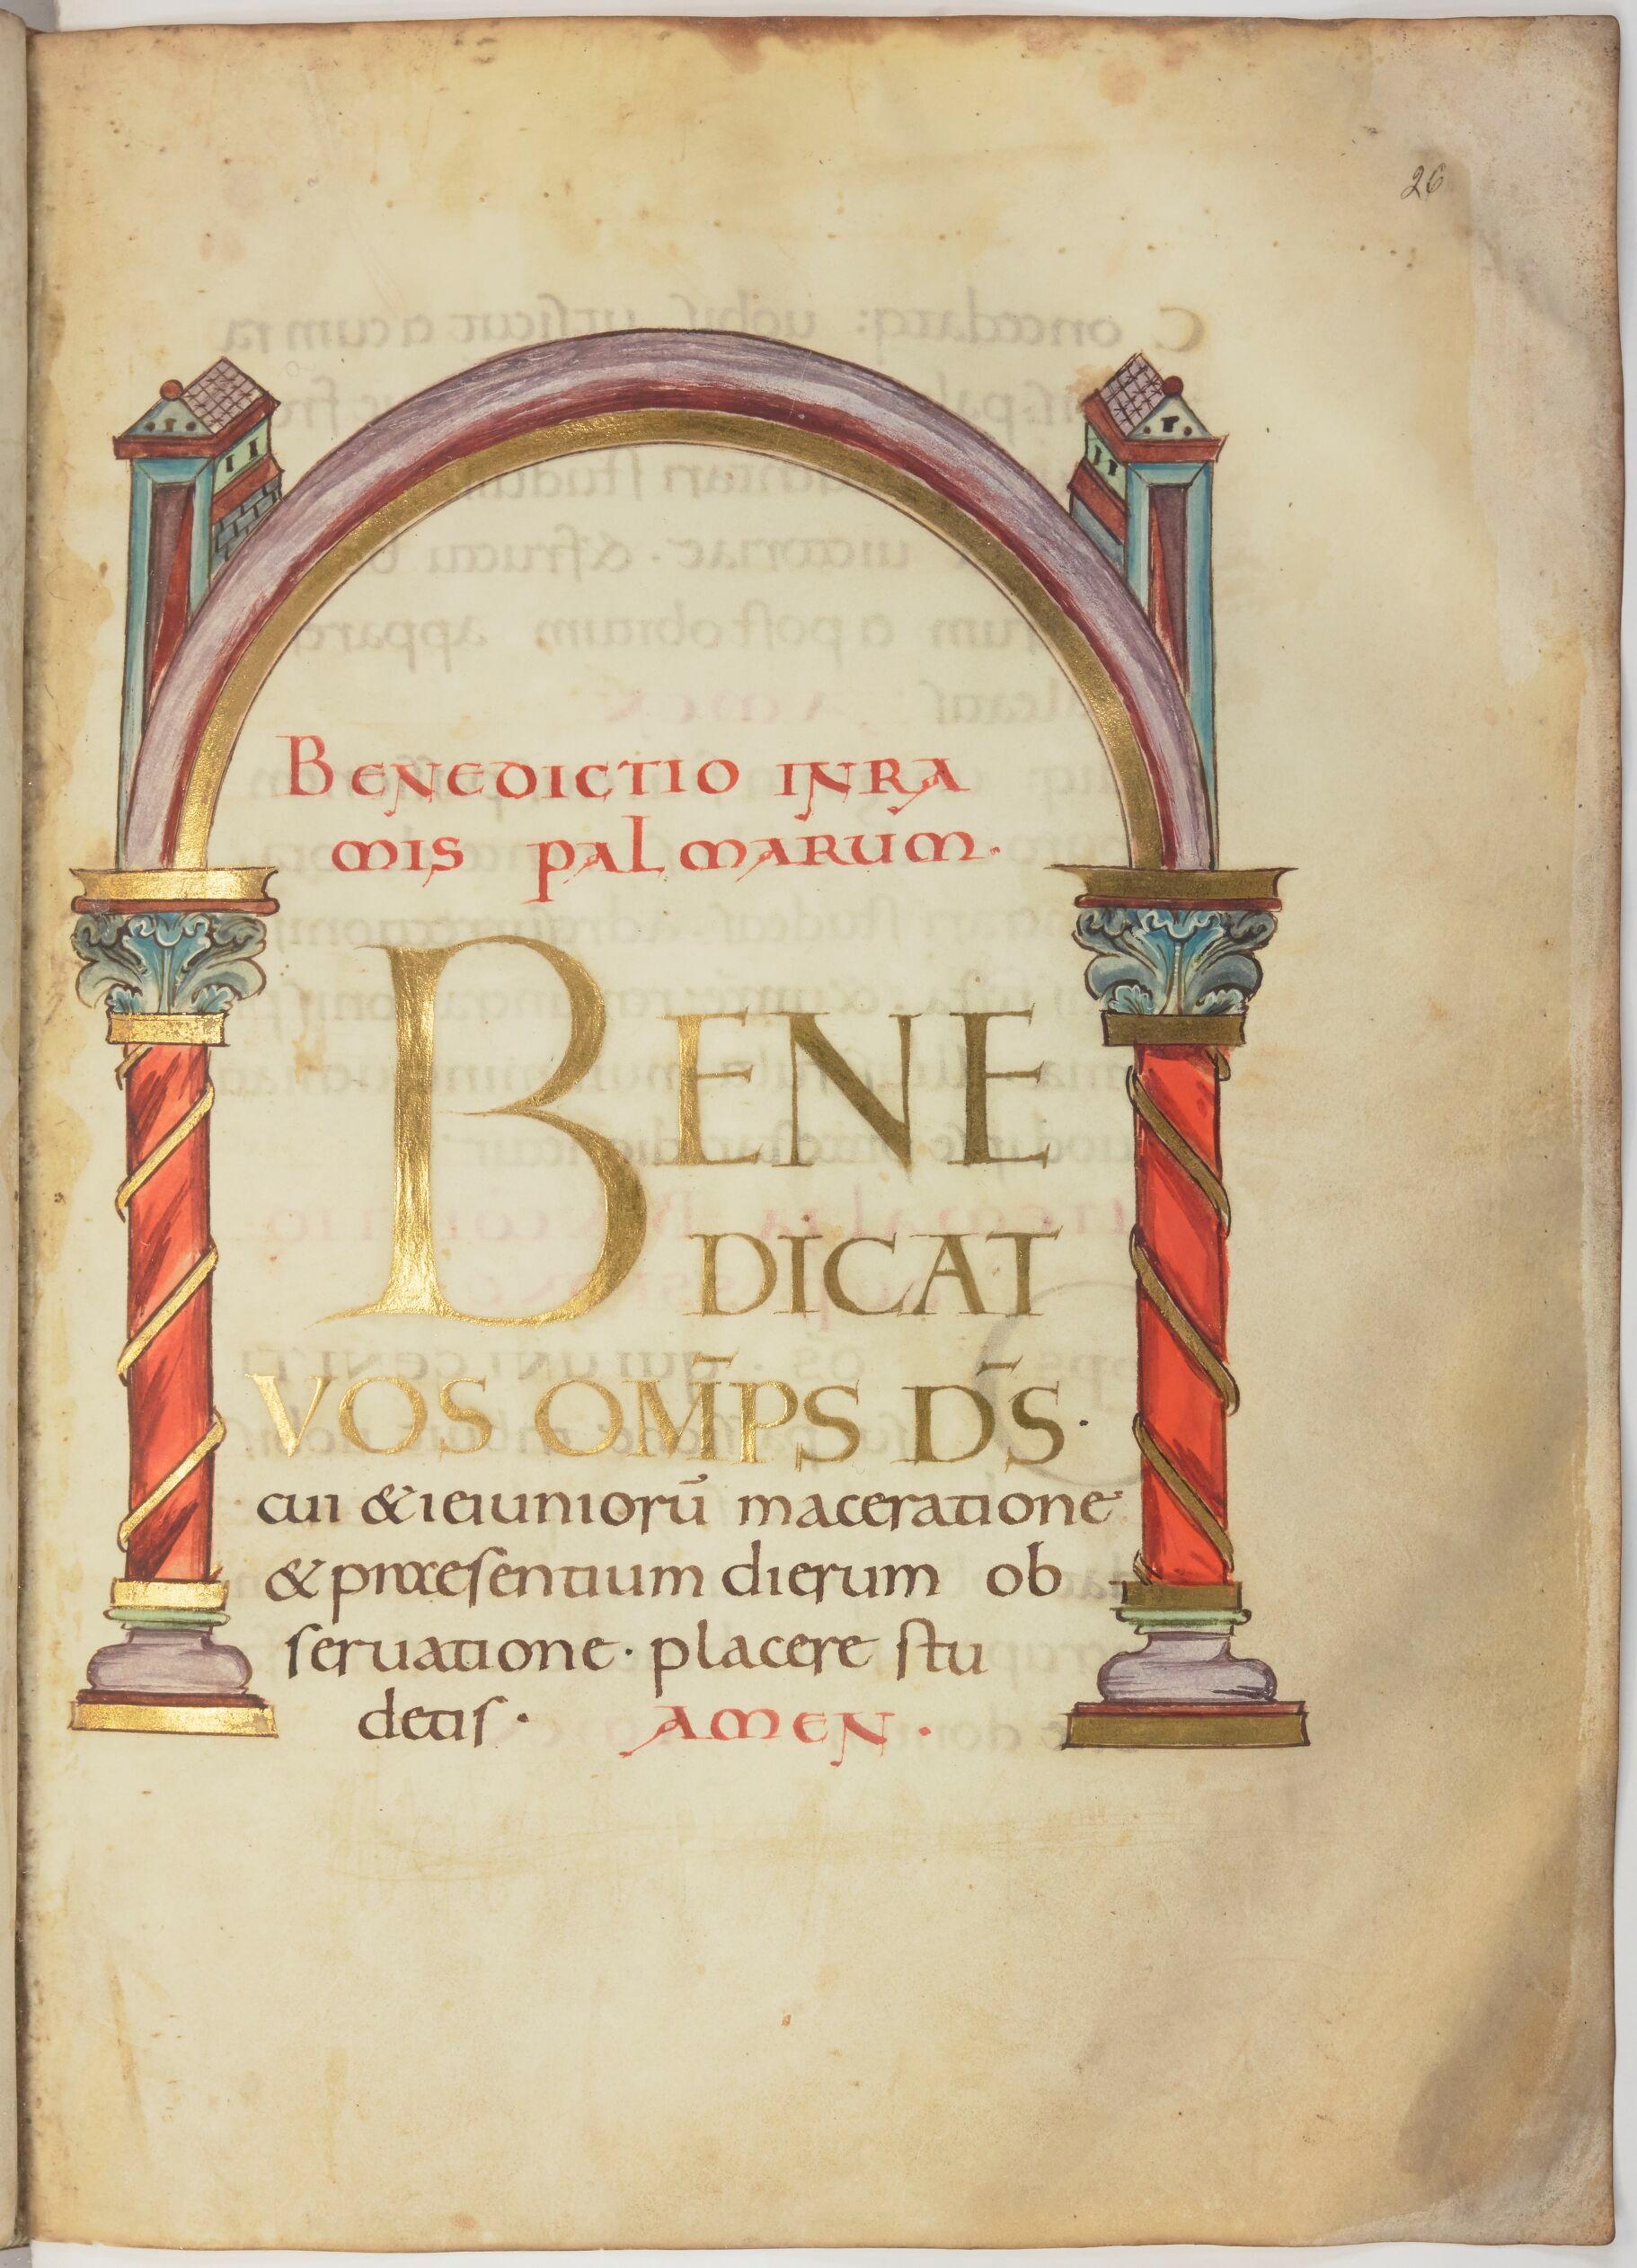 26
BENEDICTIO INRA
MIS PALMARUM.
BENE
DICAT
VOS OM̄PS D̄S·
cui & ieiuniorū maceratione·
& praesentium dierum ob
seruatione· placere stu
detis· AMEN·